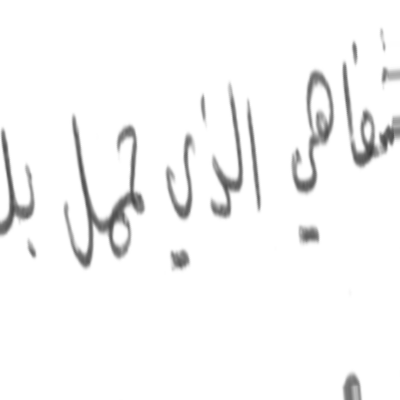 شفاهي الذي حمل بل